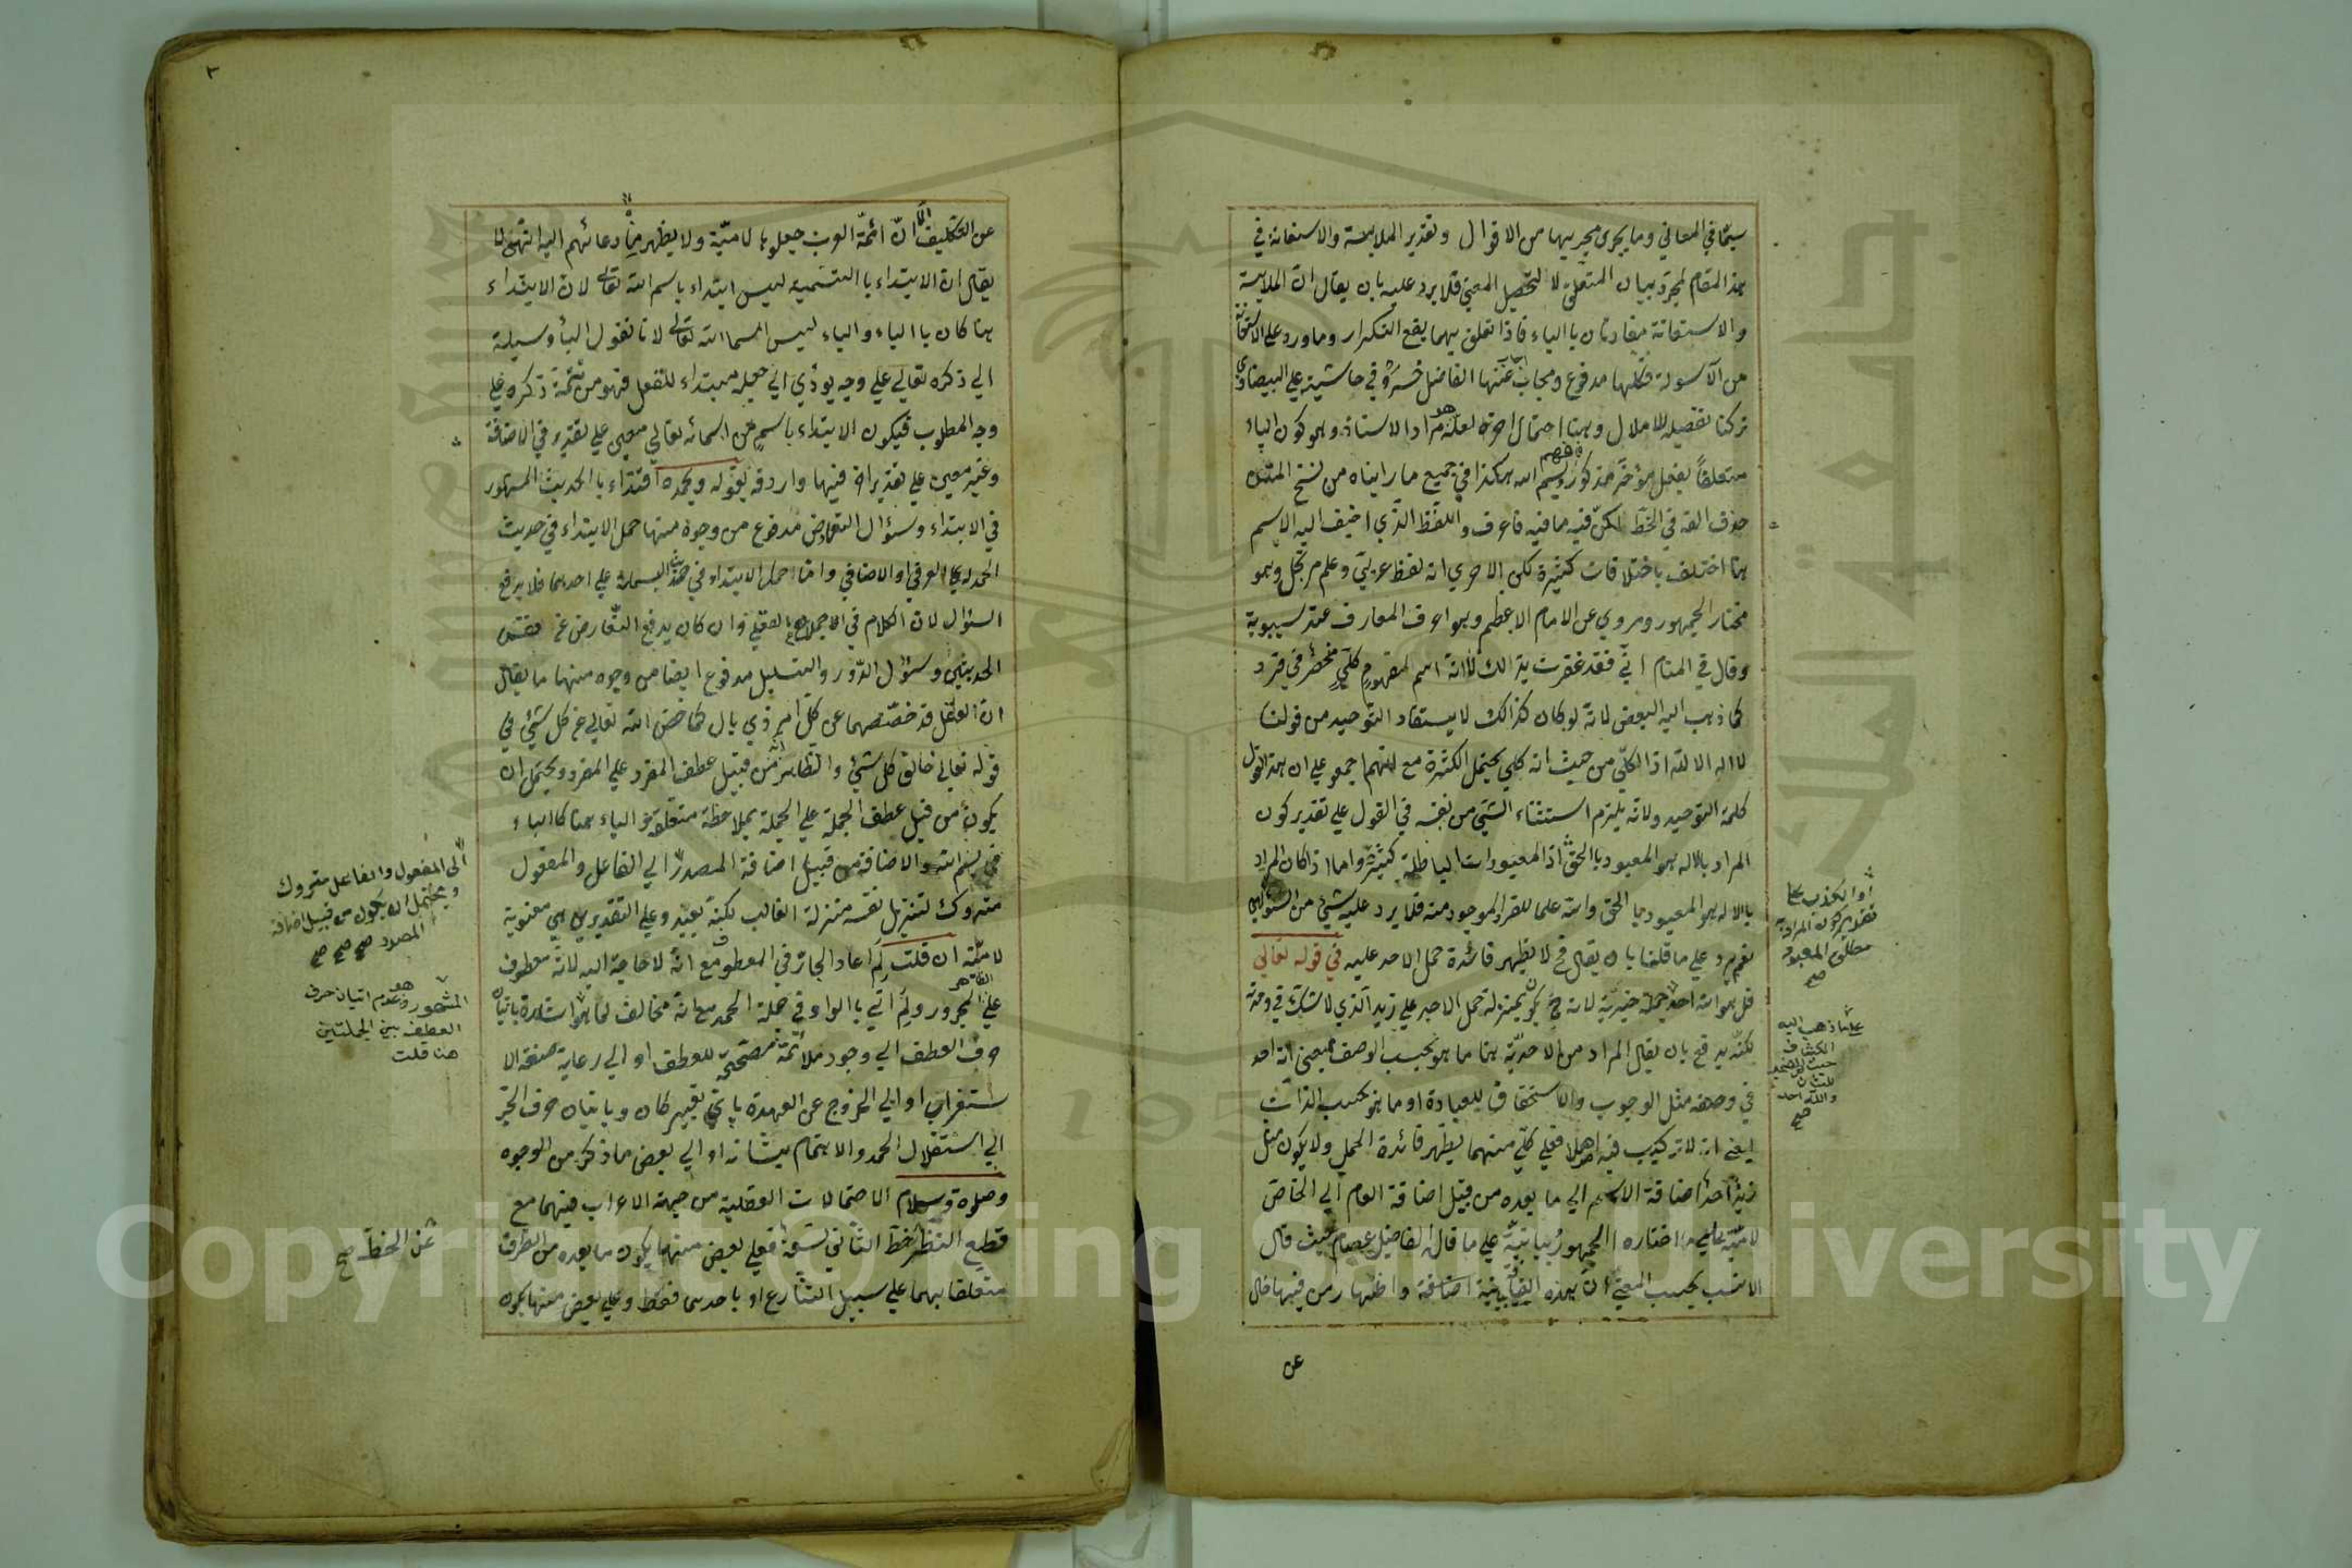 سيما في المعاني وما يجري مجريها من الاقوال وتقدير الملابسة والاستعانة في
هذا المقام لمجرد بيان المتعلق لا لتحصيل المعنى فلا يرد عليه بان يقال ان الملابسة
والاستعانة مفادتان بالباء فاذا تعلق بهما يقع التكرار وما ورد على الاستعانة
من الاسولة فكلها مدفوع ومجاب عنها الفاضل خسرو في حاشيته على البيضاوي
تركنا تفصيله للاملال وهنا احتمال اخر لعله هو مراد الاستاذ وهو كون الباء
متعلقا بفعل مؤخر مذكور فافهم بسم الله هكذا في جميع ما رايناه من نسخ المتن
حذف الفه في الخط لكن فيه ما فيه فاعرف واللفظ الذي اضيف اليه الاسم
هنا اختلف باختلافات كثيرة لكن الاحرى انه لفظ عربي وعلم مرتجل وهو
مختار الجمهور ومروي عن الامام الاعظم وهو اعرف المعارف عند سيبوية
وقال في المنام اني فقد غفرت بذالك لا انه اسم لمفهوم كلي منحصر في فرد
كما ذهب اليه البعض لانه لو كان كذالك لا يستفاد التوحيد من قولنا
لا اله الا الله اذ الكلي من حيث انه كلي يحتمل الكثرة مع انهم اجمعو على ان هذا القول
كلمة التوحيد ولانه يلزم استثناء الشيئ من نفسه في القول على تقدير كون
المراد بالاله هو المعبود بالحق اذ المعبودات الباطلة كثيرة واما اذا كان المراد
بالاله هو المعبود بالحق والله علما للفرد الموجود منه فلا يرد عليه شيئ من السؤالين
نعم يرد على ما قلنا بان يقال فح لا يظهر فائدة حمل الاحد عليه في قوله تعالى
قل هو الله احد جملة خبرية لانه ح يكون بمنزلة حمل الاحد على زيد الذي لا شك في وحدته
لكنه يدفع بان يقال المراد من الاحدية هنا ما هو بحسب الوصف بمعنى انه احد
في وصفه مثل الوجوب والاستحقاق للعبادة او ما هو بحسب الذات
يعني انه لا تركيب فيه اصلا فعلى كل منهما يظهر فائدة الحمل ولا يكون مثل
زيد احد اضافة الاسم الى ما بعده من قبيل اضافة العام الى الخاص
لامية على ما اختاره الجمهور بيانية على ما قال الفاضل عصام حيث قال
الانسب بحسب المعنى ان هذه
عن
او الكذب على
تقدير كون المراد به
مطلق المعبود
صح
على ما ذهب اليه
الكشاف
حيث
للشان
والله احد
صح
٢
عن التكليف الا ان ائمة العرب جعلوها لامية ولا يظهر دعائهم اليه انتهى لا
يقال ان الابتداء بالتسمية ليس ابتداء باسم الله تعالى لان الابتداء
هنا كان بالباء والباء ليس اسما لله تعالى لانا نقول الباء وسيلة
الى ذكره تعالى على وجه يؤدي الى جعله مبتداء للفعل فهو من تتمة ذكره على
وجه المطلوب فيكون الابتداء باسم من اسمائه تعالى معين على تقدير في الاضافة
وغير معين على تقدير اخر فيها واردفه بقوله وبحمده اقتداء بالحديث المشهور
في الابتداء وسؤال التعارض مدفوع من وجوه منها حمل الابتداء في حديث
الحمدلة على العرفي او الاضافي واما حمل الابتداء في حديث البسملة على احدهما فلا يرفع
السؤال لان الكلام في وان كان يدفع التعارض عن نفس
الحديثين وسؤال الدور والتسلسل مدفوع ايضا من وجوه منها ما يقال
ان العقل قد خصصهما عن كل امر ذي بال كما خص الله تعالى عن كل شيئ في
قوله تعالى خالق كل شيئ والظاهر انه من قبيل عطف المفرد على المفرد ويحتمل ان
يكون من قبيل عطف الجملة على الجملة بملاحظة متعلقه والباء هنا كالباء
في بسم الله والاضافة من قبيل اضافة المصدر الى الفاعل والمفعول
متروك لتنزيل نفسه منزلة الغائب لكنه بعيد وعلى التقديرين هي معنوية
لامية ان قلت لم اعاد الجار في المعطوف مع انه لا حاجة اليه لانه معطوف
على المجرور ولم اتي بالواو في جملة الحمد مع انه مخالف لما هو الظاهر
حرف العطف الى وجود ملائمة مصححة للعطف او الى رعاية صنعة الا
ستغراب او الى الخروج عن العهدة باي تعبير كان وباتيان حرف الجر
الى استقلال الحمد والاهتمام بشانه او الى بعض ما ذكر من الوجوه
وصلوة وسلام الاحتمالات العقلية من جهة الاعراب فيهما مع
قطع النظر خط الثاني تسعة فعلى بعض منها يكون ما بعده من الظرف
متعلقا بهما على سبيل التنازع او باحدهما فقط وعلى بعض منها يكون
الى المفعول والفاعل متروك
ويحتمل ان يكون من قبيل اضافة
المصدر صح صح صح
المشهور هو عدم اتيان حرف
العطف بين الجملتين
هنا قلت
عن الخط صح
Copyright © King Saud University